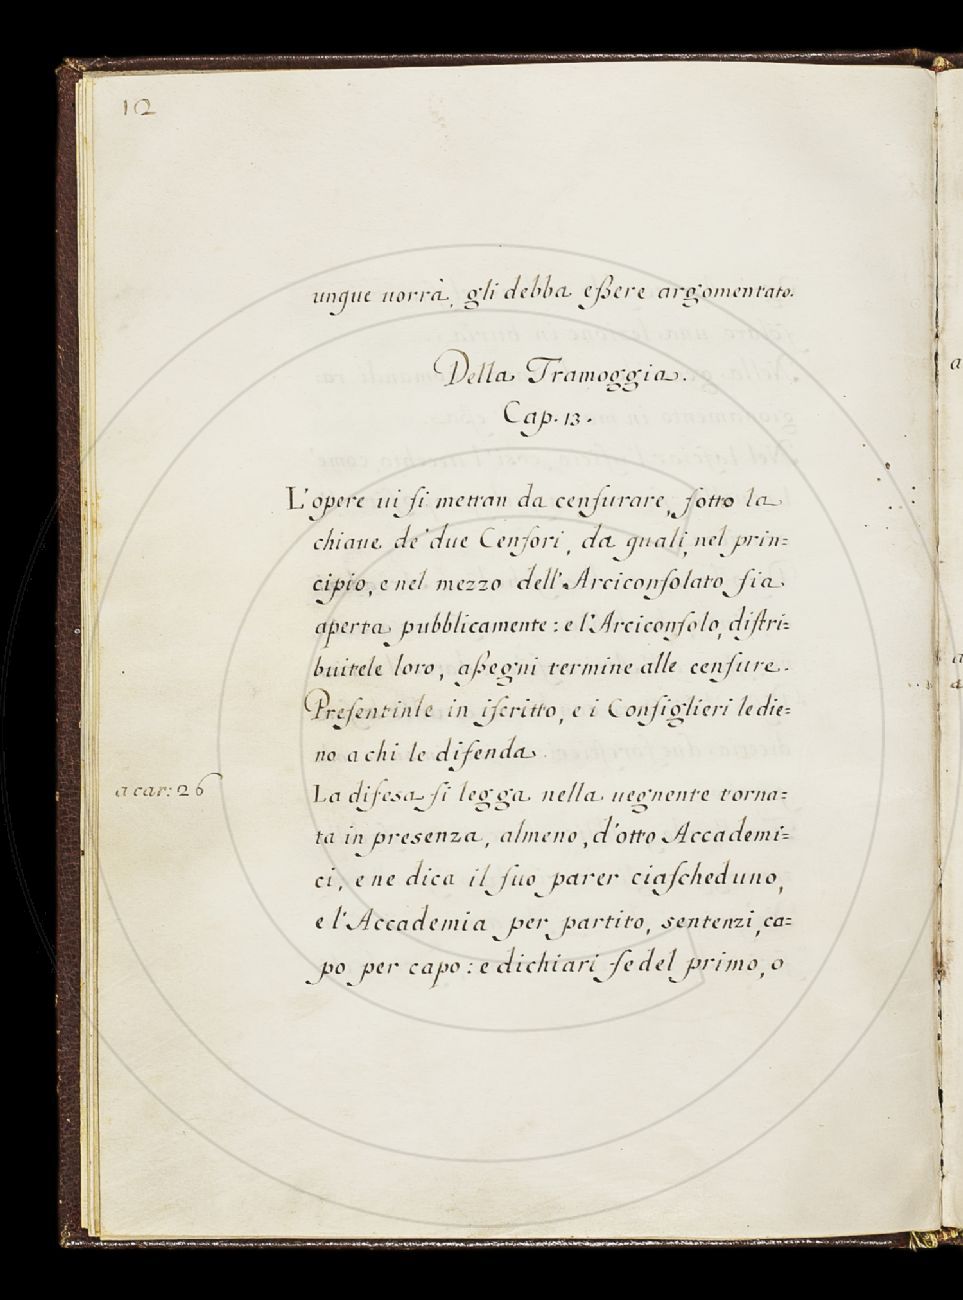 12
unque uorrà, gli debba eßere argomentato.
Della Tramoggia.
Cap. 13.
L'opere ui ſi mettan da cenſurare, ſotto la
chiaue de' due Cenſori, da quali, nel prin=
cipio, e nel mezzo dell'Arciconſolato ſia
aperta pubblicamente: e l'Arciconſolo, diſtri=
buitele loro, aßegni termine alle cenſure.
Preſentinle in iſcritto, e i Conſiglieri le die=
no a chi le difenda.
a car: 26
La difesa ſi legga nella uegnente torna=
ta in presenza, almeno, d'otto Accademi=
ci, e ne dica il ſuo parer ciaſcheduno,
e l'Accademia per partito, sentenzi, ca=
po per capo: e dichiari ſe del primo, o